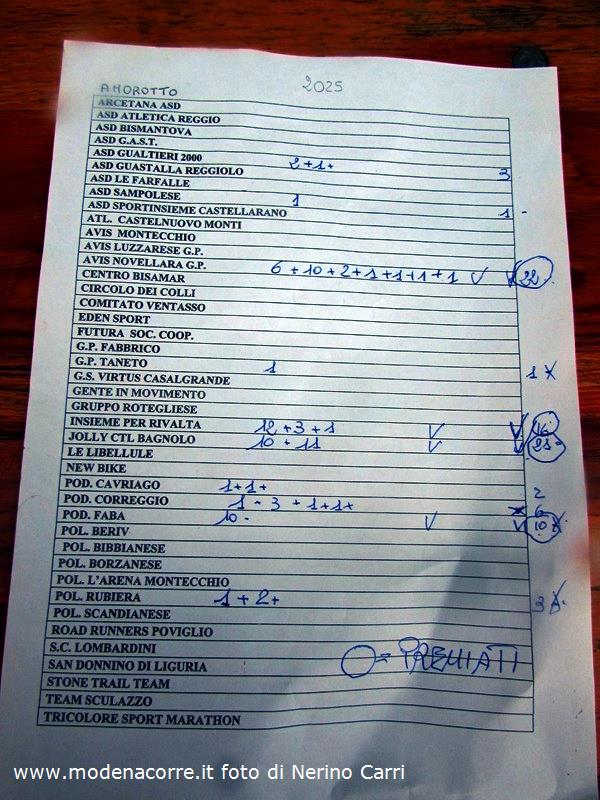 AMOROTTO 2025
ARCETANA ASD
ASD ATLETICA REGGIO
ASD BISMANTOVA
ASD G.A.S.T.
ASD GUALTIERI 2000
ASD GUASTALLA REGGIOLO 2+1+ 3
ASD LE FARFALLE
ASD SAMPOLESE
ASD SPORTINSIEME CASTELLARANO 1 1 -
ATL. CASTELNUOVO MONTI
AVIS MONTECCHIO
AVIS LUZZARESE G.P.
AVIS NOVELLARA G.P.
CENTRO BISAMAR 6+10+2+1+1+1+1 ✓ ✓ 22
CIRCOLO DEI COLLI
COMITATO VENTASSO
EDEN SPORT
FUTURA SOC. COOP.
G.P. FABBRICO
G.P. TANETO 1
G.S. VIRTUS CASALGRANDE 1 x
GENTE IN MOVIMENTO
GRUPPO ROTEGLIESE
INSIEME PER RIVALTA 12+3+1 ✓ ✓ 16
JOLLY CTL BAGNOLO 10+11 ✓ ✓ 21
LE LIBELLULE
NEW BIKE
POD. CAVRIAGO 1+1+ 2
POD. CORREGGIO 1-3+1+1+ x 6
POD. FABA 10- ✓ ✓ 10 x
POL. BERIV
POL. BIBBIANESE
POL. BORZANESE
POL. L'ARENA MONTECCHIO
POL. RUBIERA 1+2+ 3
POL. SCANDIANESE
ROAD RUNNERS POVIGLIO
S.C. LOMBARDINI
SAN DONNINO DI LIGURIA = PREMIATI
STONE TRAIL TEAM
TEAM SCULAZZO
TRICOLORE SPORT MARATHON
www.modenacorre.it foto di Nerino Carri